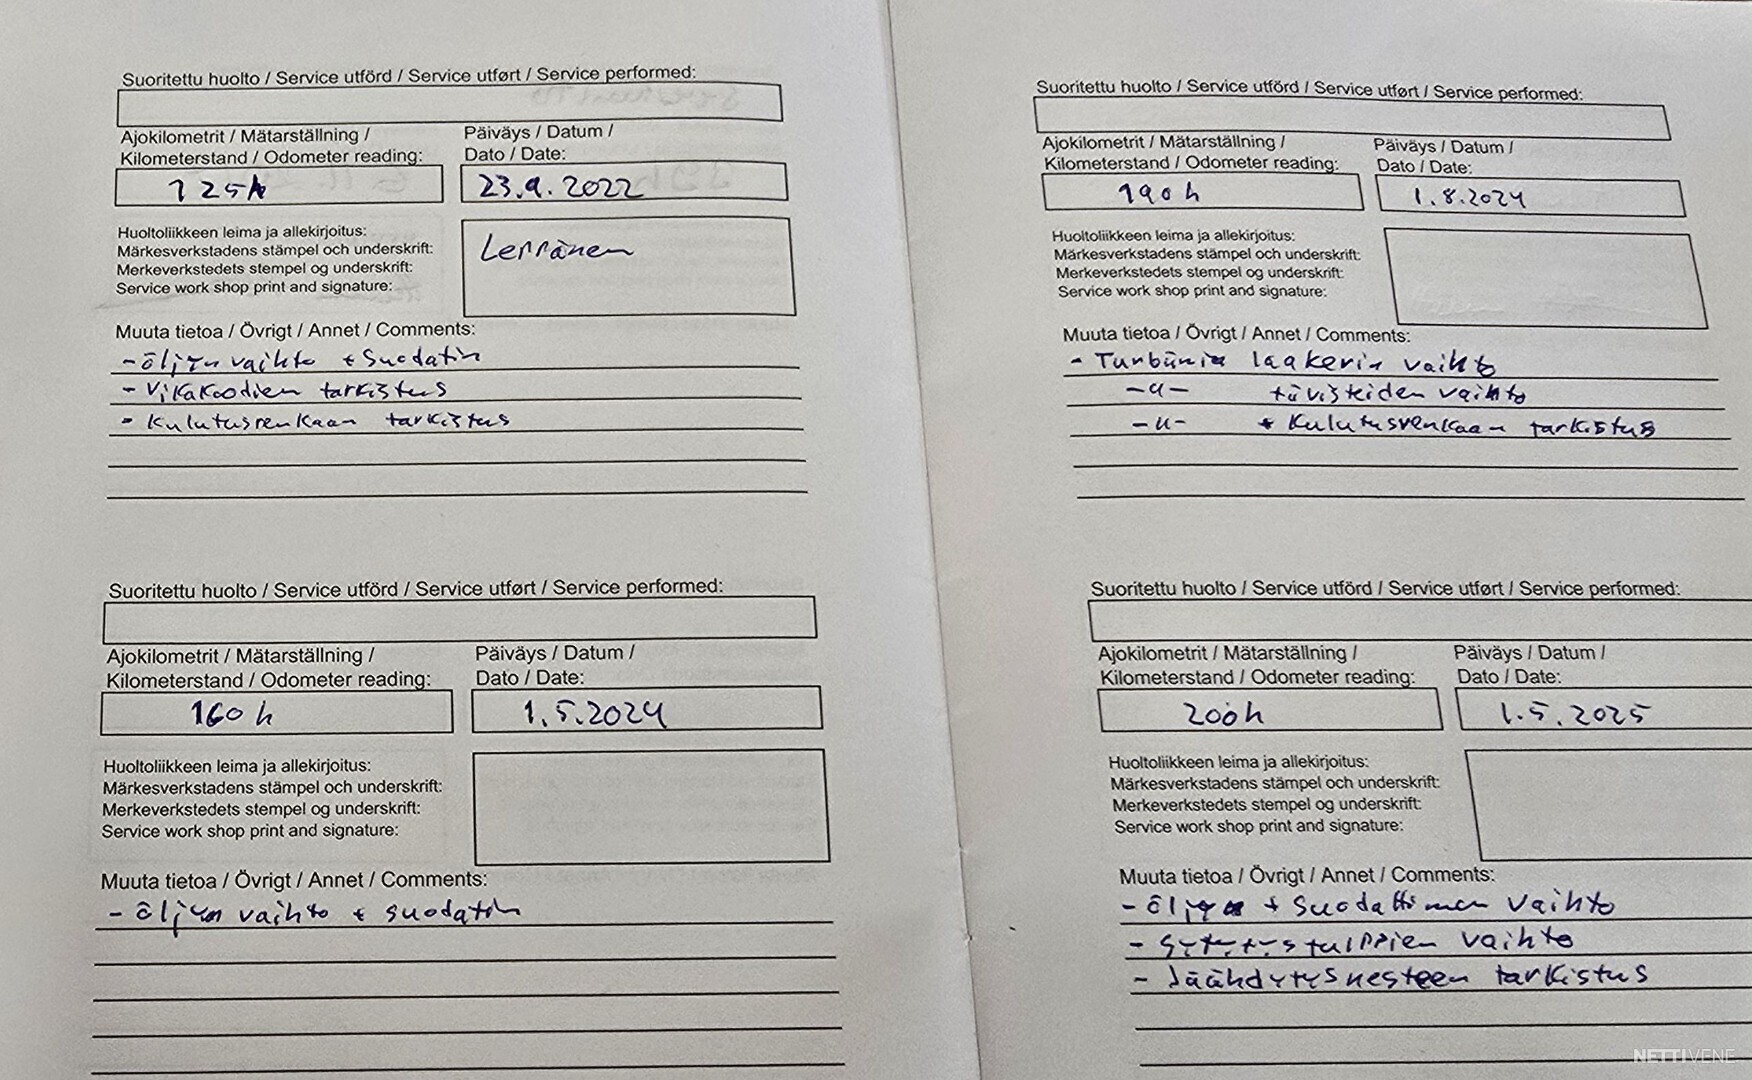 Suoritettu huolto / Service utförd / Service utført / Service performed:
Ajokilometrit / Mätarställning /
Kilometerstand / Odometer reading:
Päiväys / Datum /
Dato / Date:
125h
23.9.2022
Huoltoliikkeen leima ja allekirjoitus:
Märkesverkstadens stämpel och underskrift:
Merkeverkstedets stempel og underskrift:
Service work shop print and signature:
Muuta tietoa / Övrigt / Annet / Comments:
- öljyn vaihto + suodatin
- Vikakoodien tarkistus
- Kulutusrenkaan tarkistus
Suoritettu huolto / Service utförd / Service utført / Service performed:
Ajokilometrit / Mätarställning /
Kilometerstand / Odometer reading:
Päiväys / Datum /
Dato / Date:
160h
1.5.2024
Huoltoliikkeen leima ja allekirjoitus:
Märkesverkstadens stämpel och underskrift:
Merkeverkstedets stempel og underskrift:
Service work shop print and signature:
Muuta tietoa / Övrigt / Annet / Comments:
- öljyn vaihto + suodatin
Suoritettu huolto / Service utförd / Service utført / Service performed:
Ajokilometrit / Mätarställning /
Kilometerstand / Odometer reading:
Päiväys / Datum /
Dato / Date:
190h
1.8.2024
Huoltoliikkeen leima ja allekirjoitus:
Märkesverkstadens stämpel och underskrift:
Merkeverkstedets stempel og underskrift:
Service work shop print and signature:
Muuta tietoa / Övrigt / Annet / Comments:
- Turbiinin laakerin vaihto
-u- tiivisteiden vaihto
-u- + Kulutusrenkaan tarkistus
Suoritettu huolto / Service utförd / Service utført / Service performed:
Ajokilometrit / Mätarställning /
Kilometerstand / Odometer reading:
Päiväys / Datum /
Dato / Date:
200h
1.5.2025
Huoltoliikkeen leima ja allekirjoitus:
Märkesverkstadens stämpel och underskrift:
Merkeverkstedets stempel og underskrift:
Service work shop print and signature:
Muuta tietoa / Övrigt / Annet / Comments:
- öljyn + suodattimen vaihto
- sytytystulppien vaihto
- Jäähdytysnesteen tarkistus
NETTIVENE